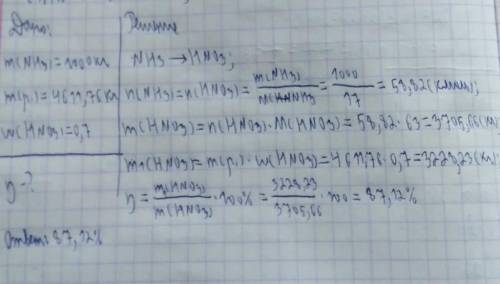 Дано:
m(NH3)=1000кг
m(р.)=4611,76кг
w(HNO3)=0,7
η-?
Решение
NH3→HNO3;
n(NH3)=n(HNO3)=m(NH3)/M(NH3)=1000/17=58,82(кмоль);
m(HNO3)=n(HNO3)·M(HNO3)=58,82·63=3705,66(кг)
m1(HNO3)=m(р.)·w(HNO3)=4611,76·0,7=3228,23(кг)
η=m1(HNO3)/m(HNO3)·100%=3228,23/3705,66·100=87,12%
Ответ: 87,12%